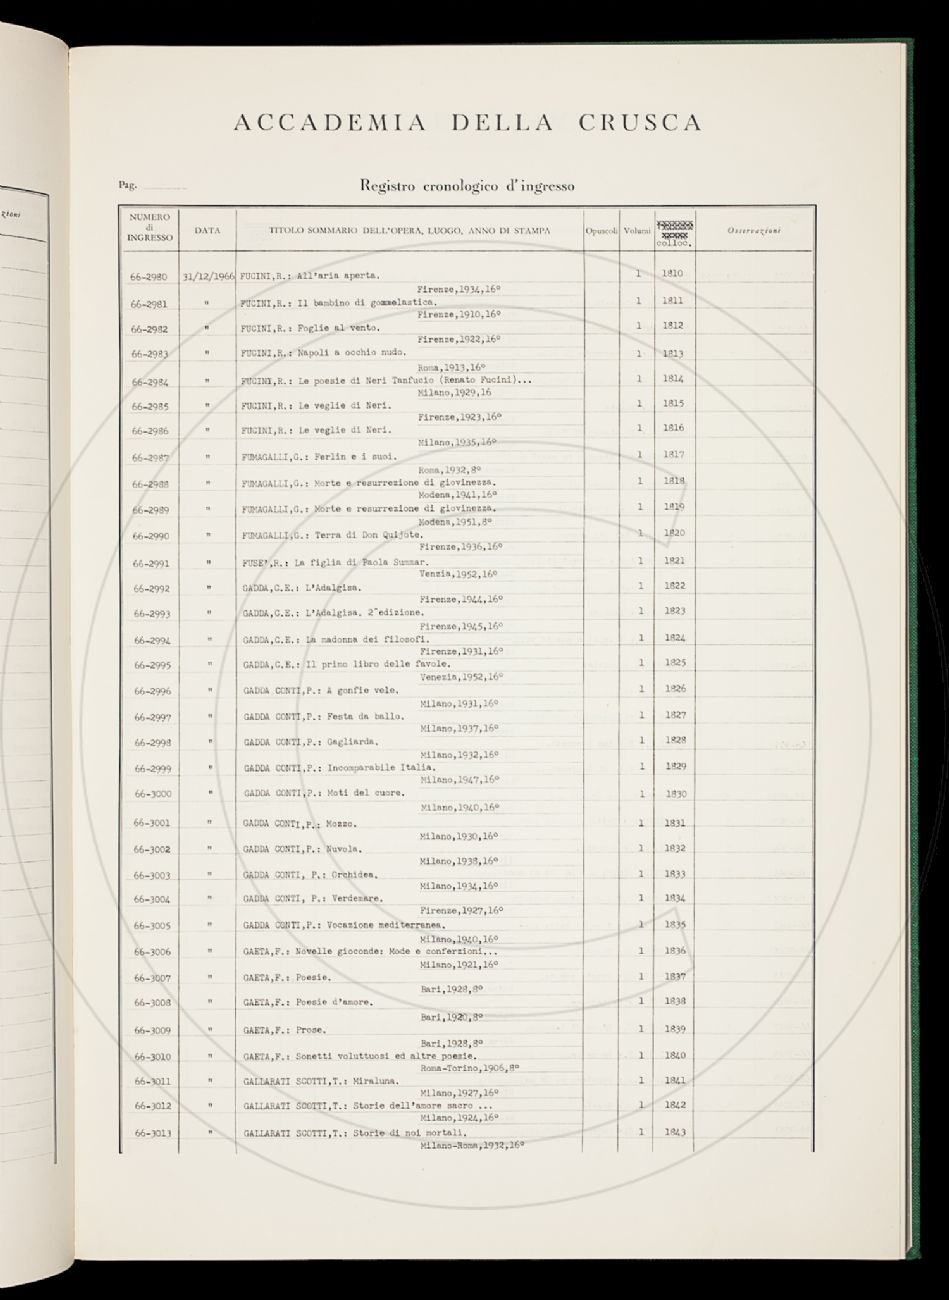 zioni
ACCADEMIA DELLA CRUSCA
Pag.
Registro cronologico d'ingresso
NUMERO di INGRESSO DATA TITOLO SOMMARIO DELL'OPERA, LUOGO, ANNO DI STAMPA Opuscoli Volumi colloc. Osservazioni
66-2980 31/12/1966 FUCINI,R.: All'aria aperta. 1 1810
Firenze,1934,16º
66-2981 " FUCINI,R.: Il bambino di gommelastica. 1 1811
Firenze,1910,16º
66-2982 " FUCINI,R.: Foglie al vento. 1 1812
Firenze,1922,16º
66-2983 " FUCINI,R.: Napoli a occhio nudo. 1 1813
Roma,1913,16º
66-2984 " FUCINI,R.: Le poesie di Neri Tanfucio (Renato Fucini)... 1 1814
Milano,1929,16
66-2985 " FUCINI,R.: Le veglie di Neri. 1 1815
Firenze,1923,16º
66-2986 " FUCINI,R.: Le veglie di Neri. 1 1816
Milano,1935,16º
66-2987 " FUMAGALLI,G.: Ferlin e i suoi. 1 1817
Roma,1932,8º
66-2988 " FUMAGALLI,G.: Morte e resurrezione di giovinezza. 1 1818
Modena,1941,16º
66-2989 " FUMAGALLI,G.: Morte e resurrezione di giovinezza. 1 1819
Modena,1951,8º
66-2990 " FUMAGALLI,G.: Terra di Don Quijote. 1 1820
Firenze,1936,16º
66-2991 " FUSE',R.: La figlia di Paola Summar. 1 1821
Venzia,1952,16º
66-2992 " GADDA,C.E.: L'Adalgisa. 1 1822
Firenze,1944,16º
66-2993 " GADDA,C.E.: L'Adalgisa. 2ªedizione. 1 1823
Firenze,1945,16º
66-2994 " GADDA,C.E.: La madonna dei filosofi. 1 1824
Firenze,1931,16º
66-2995 " GADDA,C.E.: Il primo libro delle favole. 1 1825
Venezia,1952,16º
66-2996 " GADDA CONTI,P.: A gonfie vele. 1 1826
Milano,1931,16º
66-2997 " GADDA CONTI,P.: Festa da ballo. 1 1827
Milano,1937,16º
66-2998 " GADDA CONTI,P.: Gagliarda. 1 1828
Milano,1932,16º
66-2999 " GADDA CONTI,P.: Incomparabile Italia. 1 1829
Milano,1947,16º
66-3000 " GADDA CONTI,P.: Moti del cuore. 1 1830
Milano,1940,16º
66-3001 " GADDA CONTI,P.: Mozzo. 1 1831
Milano,1930,16º
66-3002 " GADDA CONTI,P.: Nuvola. 1 1832
Milano,1938,16º
66-3003 " GADDA CONTI, P.: Orchidea. 1 1833
Milano,1934,16º
66-3004 " GADDA CONTI, P.: Verdemare. 1 1834
Firenze,1927,16º
66-3005 " GADDA CONTI,P.: Vocazione mediterranea. 1 1835
Milano,1940,16º
66-3006 " GAETA,F.: Novelle gioconde: Mode e conferzioni... 1 1836
Milano,1921,16º
66-3007 " GAETA,F.: Poesie. 1 1837
Bari,1928,8º
66-3008 " GAETA,F.: Poesie d'amore. 1 1838
Bari,1920,8º
66-3009 " GAETA,F.: Prose. 1 1839
Bari,1928,8º
66-3010 " GAETA,F.: Sonetti voluttuosi ed altre poesie. 1 1840
Roma-Torino,1906,8º
66-3011 " GALLARATI SCOTTI,T.: Miraluna. 1 1841
Milano,1927,16º
66-3012 " GALLARATI SCOTTI,T.: Storie dell'amore sacro ... 1 1842
Milano,1924,16º
66-3013 " GALLARATI SCOTTI,T.: Storie di noi mortali. 1 1843
Milano-Roma,1932,16º